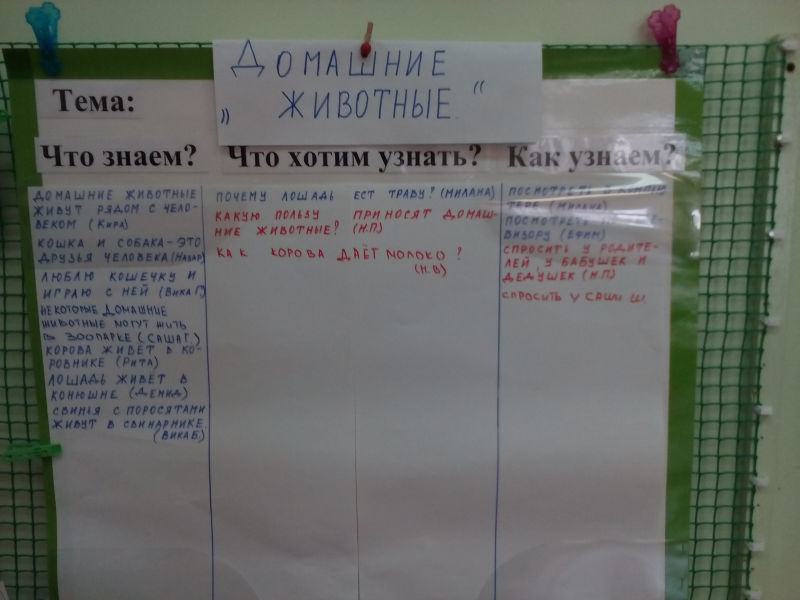 „ ДОМАШНИЕ
ЖИВОТНЫЕ."
Тема:
Что знаем?
ДОМАШНИЕ ЖИВОТНЫЕ
ЖИВУТ РЯДОМ С ЧЕЛО-
ВЕКОМ (КИРА)
КОШКА И СОБАКА-ЭТО
ДРУЗЬЯ ЧЕЛОВЕКА (НАЗАР)
ЛЮБЛЮ КОШЕЧКУ И
ИГРАЮ С НЕЙ (ВИКА Г.)
НЕКОТОРЫЕ ДОМАШНИЕ
ЖИВОТНЫЕ МОГУТ ЖИТЬ
В ЗООПАРКЕ (САША Г.)
КОРОВА ЖИВЁТ В КО-
РОВНИКЕ (РИТА)
ЛОШАДЬ ЖИВЁТ В
КОНЮШНЕ (ДЕМИД)
СВИНЬЯ С ПОРОСЯТАМИ
ЖИВУТ В СВИНАРНИКЕ.
(ВИКА Б.)
Что хотим узнать?
ПОЧЕМУ ЛОШАДЬ ЕСТ ТРАВУ? (МИЛАНА)
КАКУЮ ПОЛЬЗУ ПРИНОСЯТ ДОМАШ-
НИЕ ЖИВОТНЫЕ? (Н.П)
КАК КОРОВА ДАЁТ МОЛОКО ?
(Н.В)
Как узнаем?
ПОСМОТРЕТЬ
ТЕРЕ (МИЛАНА)
ПОСМОТРЕТЬ
ВИЗОРУ (ЕФИМ)
СПРОСИТЬ У РОДИТЕ-
ЛЕЙ, У БАБУШЕК И
ДЕДУШЕК (Н.П)
СПРОСИТЬ У САШИ Ш.